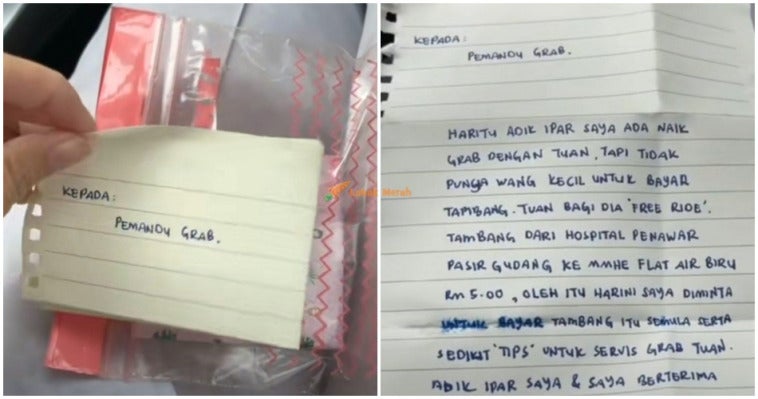 KEPADA:
PEMANDU GRAB.
Merah
KEPADA:
PEMANDU GRAB.
HARITU ADIK IPAR SAYA ADA NAIK
GRAB DENGAN TUAN, TAPI TIDAK
PUNYA WANG KECIL UNTUK BAYAR
TAMBANG. TUAN BAGI DIA 'FREE RIDE'.
TAMBANG DARI HOSPITAL PENAWAR
PASIR GUDANG KE MMHE FLAT AIR BIRU
RM 5.00, OLEH ITU HARINI SAYA DIMINTA
UNTUK BAYAR TAMBANG ITU SEMULA SERTA
SEDIKIT 'TIPS' UNTUK SERVIS GRAB TUAN.
ADIK IPAR SAYA & SAYA BERTERIMA